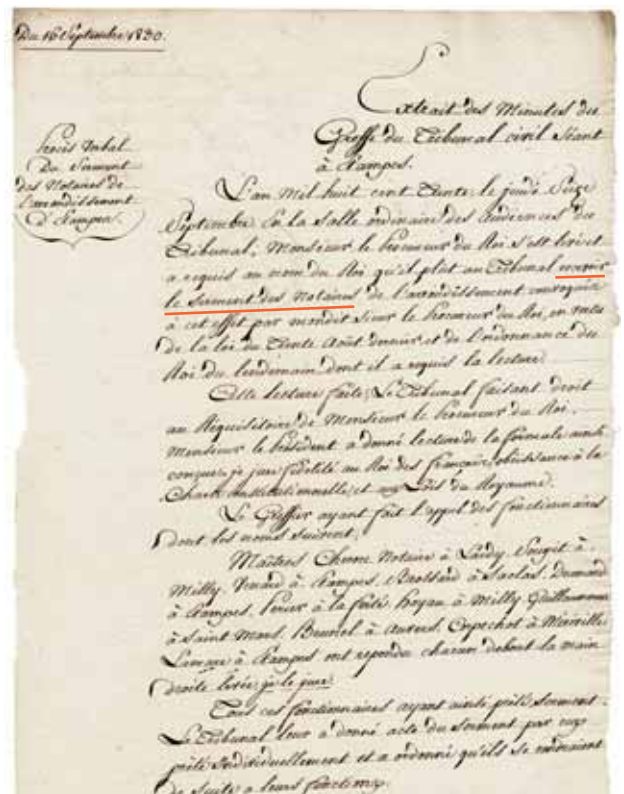 Du 16 Septembre 1830.
Procès Verbal
Du Serment
des Notaires de
l'arrondissement
d'Etampes.
Extrait des Minutes du
Greffe du Tribunal civil Séant
à Etampes.
L'an Mil huit cent Trente, le jeudi Seize
Septembre En la Salle ordinaire des Audiences du
Tribunal, Monsieur le Procureur du Roi s'est levé et
a requis au nom du Roi qu'il plût au Tribunal recevoir
le Serment des Notaires de l'arrondissement convoqués
à cet effet par mondit Sieur le Procureur du Roi, en vertu
de la loi du Trente Août dernier et de l'ordonnance du
Roi du lendemain dont il a requis la lecture
Cette lecture faite, Le Tribunal faisant droit
au Réquisitoire de Monsieur le Procureur du Roi.
Monsieur le Président a donné lecture de la formule ainsi
conçue, je jure fidélité au Roi des français, obéissance à la
Charte constitutionnelle et aux Lois du Royaume.
Le Greffier ayant fait l'appel des fonctionnaires
dont les noms suivent,
Maîtres Notaire à Lardy, à
Milly, Venard à Etampes, à Saclas,
à Etampes, à la ferté, à Milly,
à Saint Mars, Brunel à Auvers, à Méréville
à Etampes ont repondu chacun debout la main
droite levée je le jure.
Tous ces fonctionnaires ayant ainsi prêté Serment.
Le Tribunal leur a donné acte du Serment par eux
prêté Individuellement et a ordonné qu'ils se
de suite a leurs fonctions.